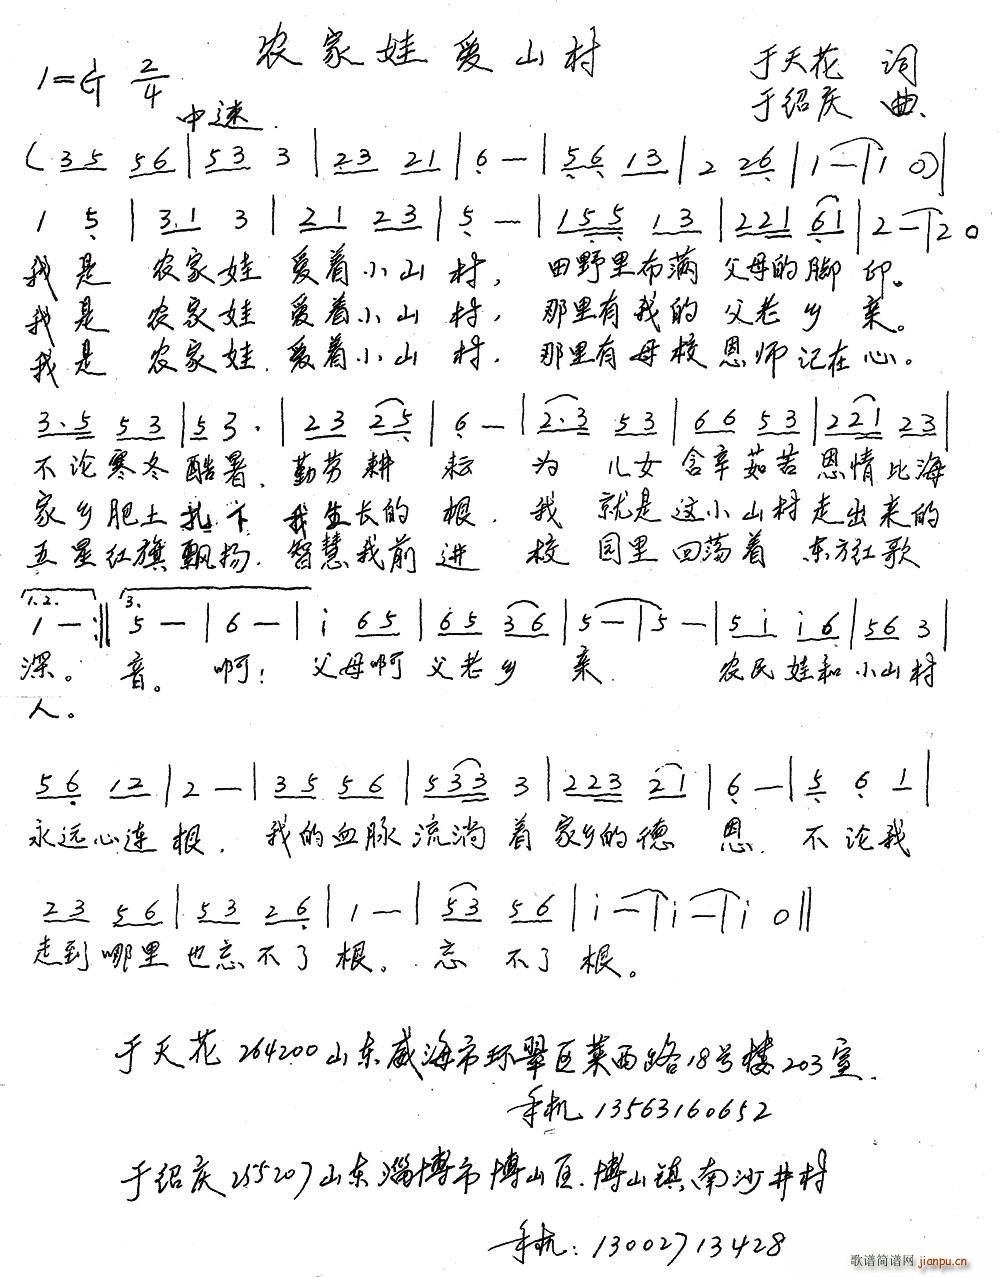 农家娃爱山村
1=G 2/4
于天花 词
于绍庆 曲
中速
( 3 5 5 6 | 5 3 3 | 2 3 2 1 | 6 — | 5 6 1 3 | 2 2 6 | 1 — | 1 0 ) |
1 5 | 3. 1 3 | 2 1 2 3 | 5 — | 1 5 5 1 3 | 2 2 1 6 1 | 2 — | 2 0
我是 农家娃 爱着小山村, 田野里布满 父母的脚印。
我是 农家娃 爱着小山村, 那里有我的 父老乡亲。
我是 农家娃 爱着小山村, 那里有母校 恩师记在心。
3. 5 5 3 | 5 3. | 2 3 2 5 | 6 — | 2. 3 5 3 | 6 6 5 3 | 2 2 1 2 3 |
不论寒冬 酷暑, 勤劳耕耘 为 儿女 含辛茹苦 恩情比海
家乡肥土 扎下 我生长的根, 我 就是 这小山村 走出来的
五星红旗 飘扬, 智慧我前进 校 园里 回荡着 东方红歌
1.2. 3.
1 — :‖ 5 — | 6 — | i 6 5 | 6 5 3 6 | 5 — | 5 — | 5 i i 6 | 5 6 3 |
深。 音。 啊! 父母啊 父老乡亲 农民娃和 小山村
人。
5 6 1 2 | 2 — | 3 5 5 6 | 5 3 3 3 | 2 2 3 2 1 | 6 — | 5 6 1 |
永远心连根, 我的血脉 流淌着 家乡的德恩. 不论我
2 3 5 6 | 5 3 2 6 | 1 — | 5 3 5 6 | i — | i — | i 0 ‖
走到哪里 也忘不了根。 忘 不了根。
于天花 264200 山东威海市环翠区莱西路18号楼203室.
手机 13563160652
于绍庆 255207 山东淄博市博山区.博山镇南沙井村
手机: 13002713428
歌谱简谱网 jianpu.cn